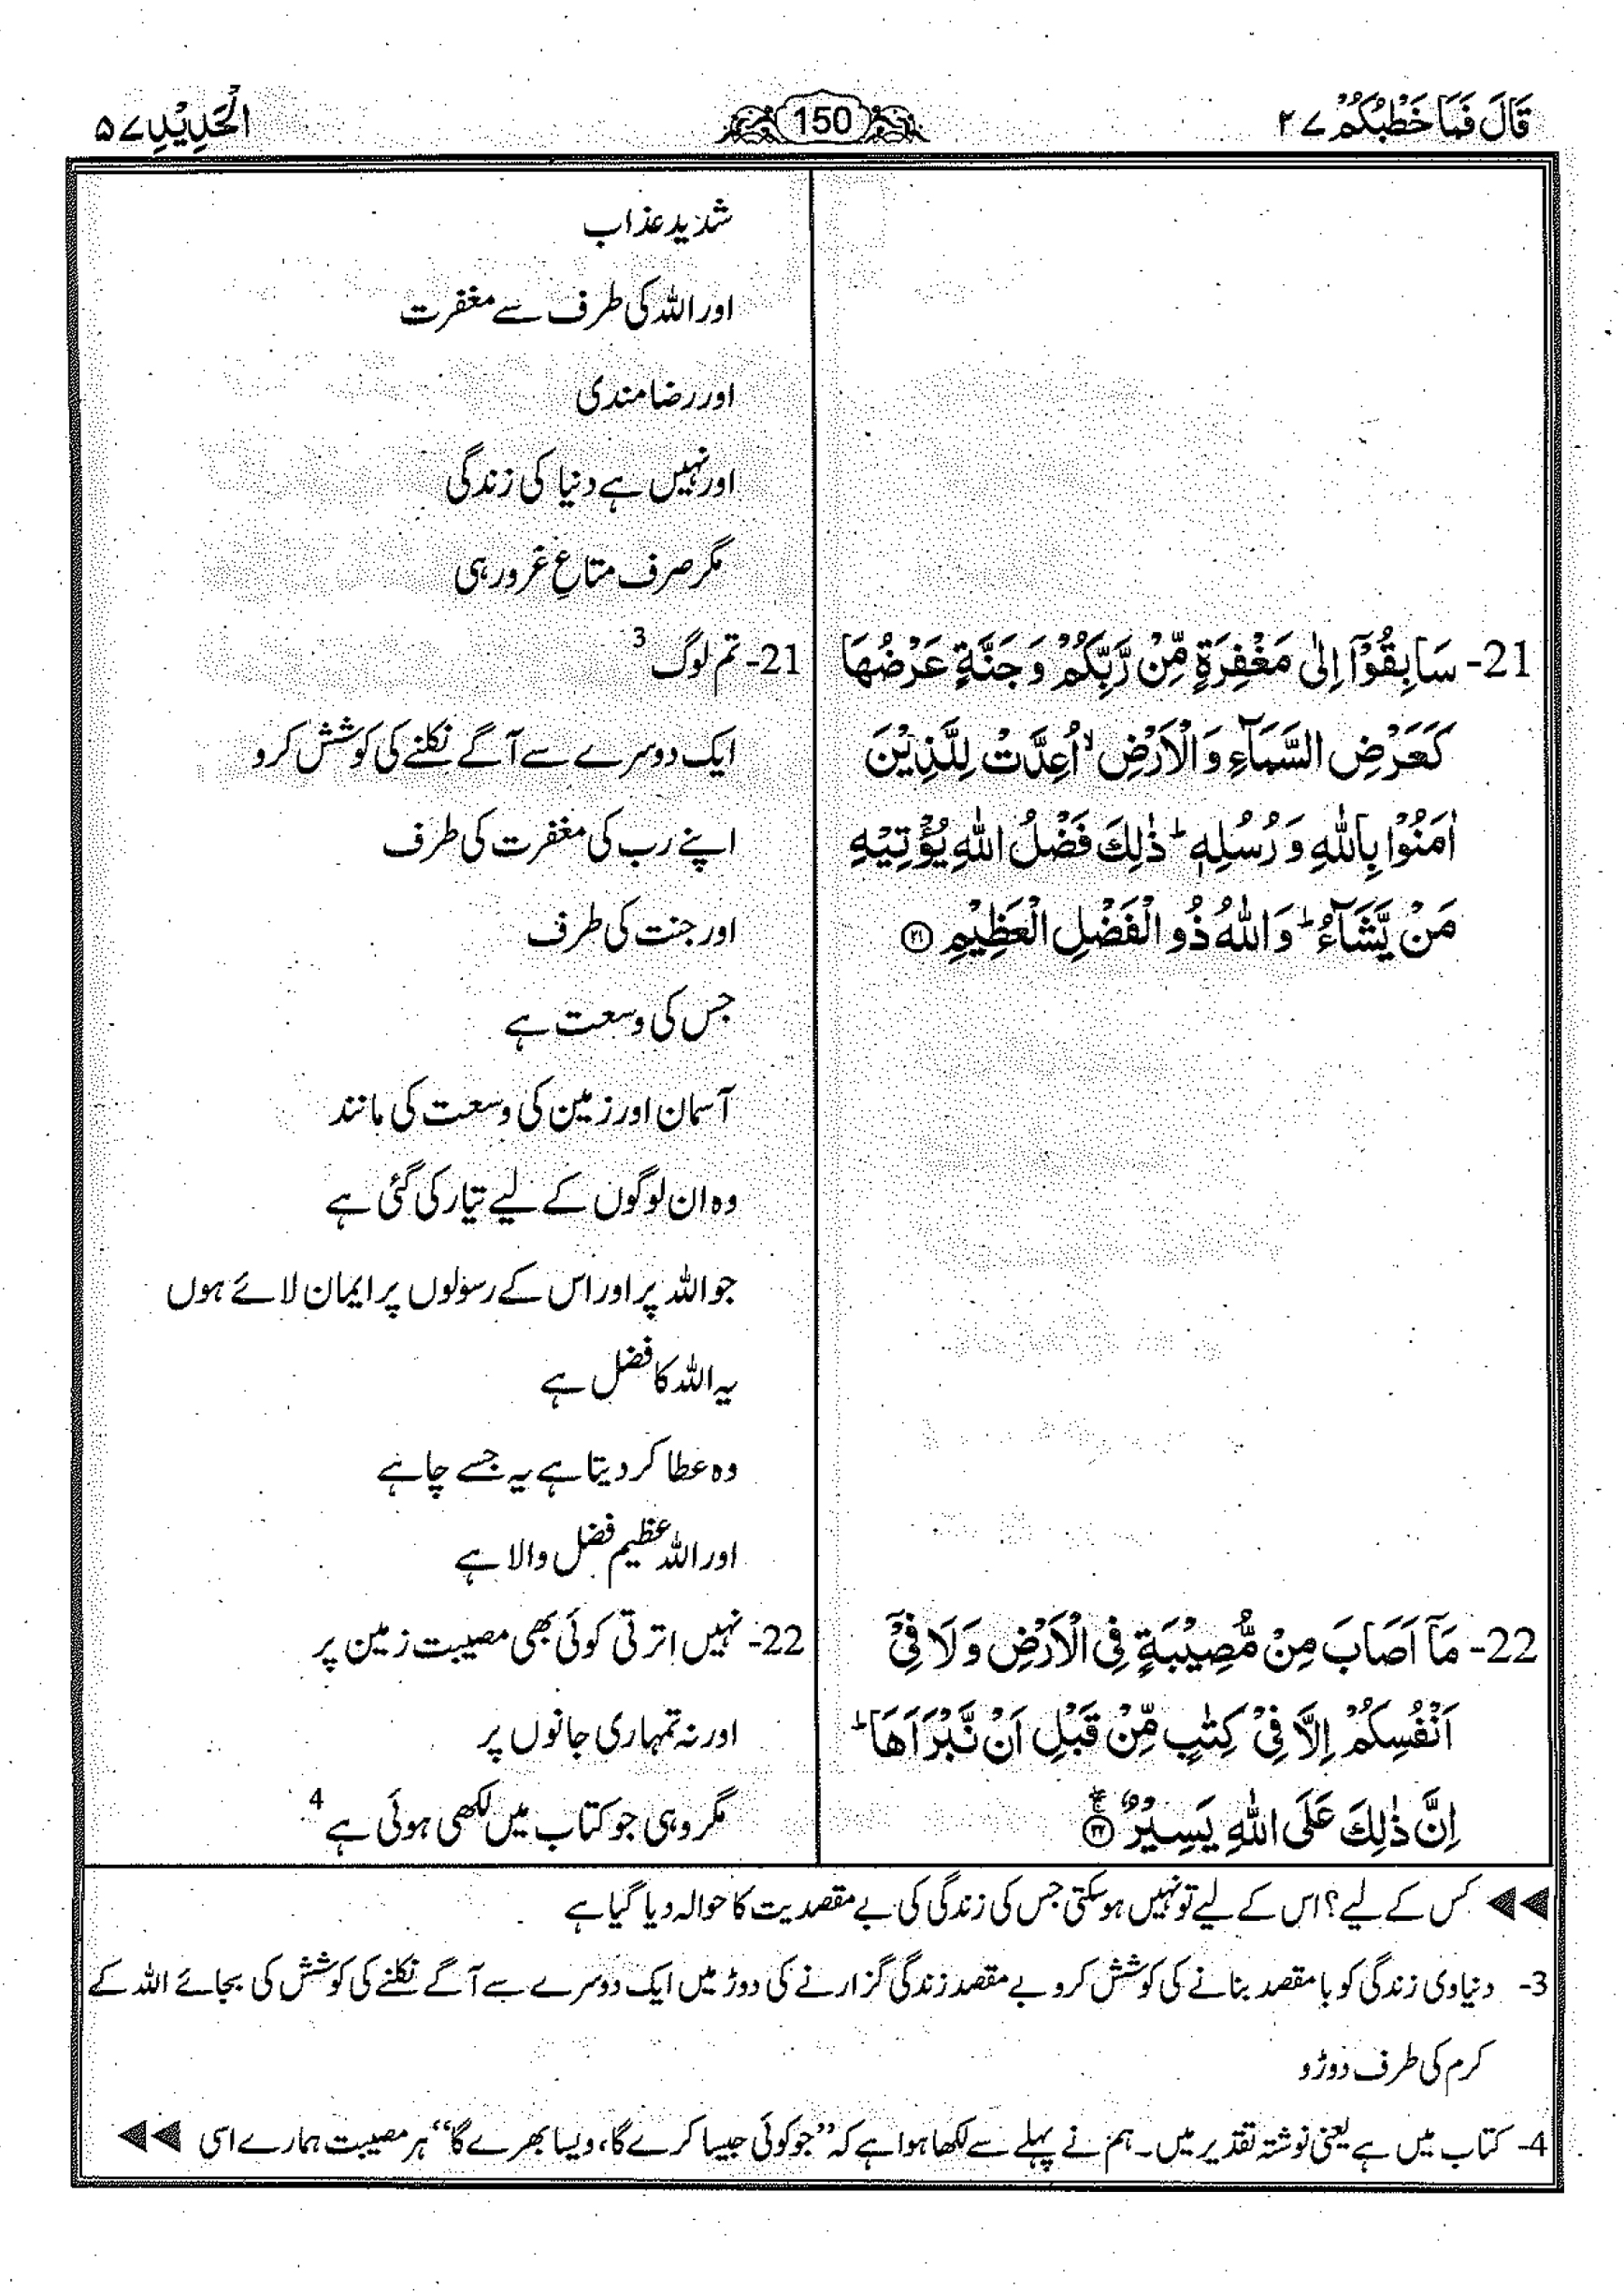 قَالَ فَمَا خَطْبُكُمْ ۲۷
150
الْحَدِيْدِ ۵۷
شدید عذاب
اور اللہ کی طرف سے مغفرت
اور رضا مندی
اور نہیں ہے دنیا کی زندگی
مگر صرف متاعِ غرور ہی
21- سَابِقُوْٓا اِلٰى مَغْفِرَةٍ مِّنْ رَّبِّكُمْ وَ جَنَّةٍ عَرْضُهَا
كَعَرْضِ السَّمَآءِ وَ الْاَرْضِ ۙ اُعِدَّتْ لِلَّذِيْنَ
اٰمَنُوْا بِاللّٰهِ وَ رُسُلِهٖ ؕ ذٰلِكَ فَضْلُ اللّٰهِ يُؤْتِيْهِ
مَنْ يَّشَآءُ ؕ وَ اللّٰهُ ذُو الْفَضْلِ الْعَظِيْمِ ۲۱
21- تم لوگ 3
ایک دوسرے سے آگے نکلنے کی کوشش کرو
اپنے رب کی مغفرت کی طرف
اور جنت کی طرف
جس کی وسعت ہے
آسمان اور زمین کی وسعت کی مانند
وہ ان لوگوں کے لیے تیار کی گئی ہے
جو اللہ پر اور اس کے رسولوں پر ایمان لائے ہوں
یہ اللہ کا فضل ہے
وہ عطا کر دیتا ہے یہ جسے چاہے
اور اللہ عظیم فضل والا ہے
22- مَآ اَصَابَ مِنْ مُّصِيْبَةٍ فِي الْاَرْضِ وَ لَا فِيْٓ
اَنْفُسِكُمْ اِلَّا فِيْ كِتٰبٍ مِّنْ قَبْلِ اَنْ نَّبْرَاَهَا ؕ
اِنَّ ذٰلِكَ عَلَى اللّٰهِ يَسِيْرٌ ۲۲
22- نہیں اترتی کوئی بھی مصیبت زمین پر
اور نہ تمہاری جانوں پر
مگر وہی جو کتاب میں لکھی ہوئی ہے 4
◀◀ کس کے لیے؟ اس کے لیے تو نہیں ہو سکتی جس کی زندگی کی بے مقصدیت کا حوالہ دیا گیا ہے
3- دنیاوی زندگی کو با مقصد بنانے کی کوشش کرو بے مقصد زندگی گزارنے کی دوڑ میں ایک دوسرے سے آگے نکلنے کی کوشش کی بجائے اللہ کے
کرم کی طرف دوڑو
4- کتاب میں ہے یعنی نوشتہ تقدیر میں۔ ہم نے پہلے سے لکھا ہوا ہے کہ ’’جو کوئی جیسا کرے گا، ویسا بھرے گا‘‘ ہر مصیبت ہمارے اسی ◀◀